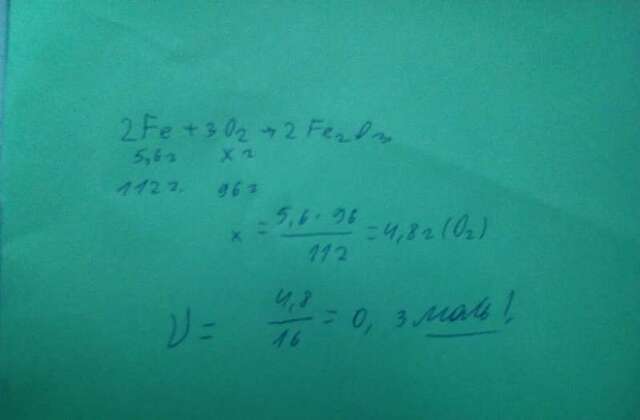 2Fe + 3O2 → 2Fe2O3
5,6г x г
112г. 96г
x = 5,6 · 96 / 112 = 4,8г (O2)
ν = 4,8 / 16 = 0,3 моль!